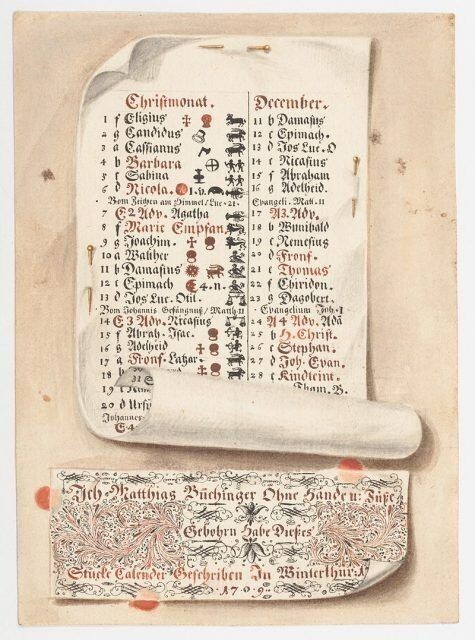 Christmonat.
1 f Eligius
2 g Candidus
3 a Cassianus
4 b Barbara
5 c Sabina
6 d Nicola. 1.v.
Vom Zeichen am Himmel/Luc. 21.
7 E2 Adv. Agatha
8 f Marie Empfan.
9 g Joachim.
10 a Walther
11 b Damasius
12 c Epimach 4. n.
13 d Jos Luc. Otil.
Vom Johannis Gefängnuß/Matth. 11
14 E3 Adv. Nicasius
15 f Abrah. Isac.
16 g Adelheid
17 a Fronf. Lazar.
18 b
31
19
20 d Ursi
Johannes
E4
December.
11 b Damasus
12 c Epimach.
13 d Jos Luc. O
14 e Nicasius
15 f Abraham
16 g Adelheid.
Evangeli. Matt. 11
17 A3. Adv.
18 b Wunibald
19 c Nemesius
20 d Fronf.
21 e Thomas
22 f Chiridon.
23 g Dagobert.
Evangelium Joh. 1
24 A4 Adv. Adã
25 b H. Christ.
26 c Stephan.
27 d Joh. Evan.
28 e Kindleint.
Tham. B.
Ich Matthias Büchinger Ohne Hände u: Füße
Gebohrn Habe Dießes
Stucke Calender Geschriben In Winterthur: A
1709